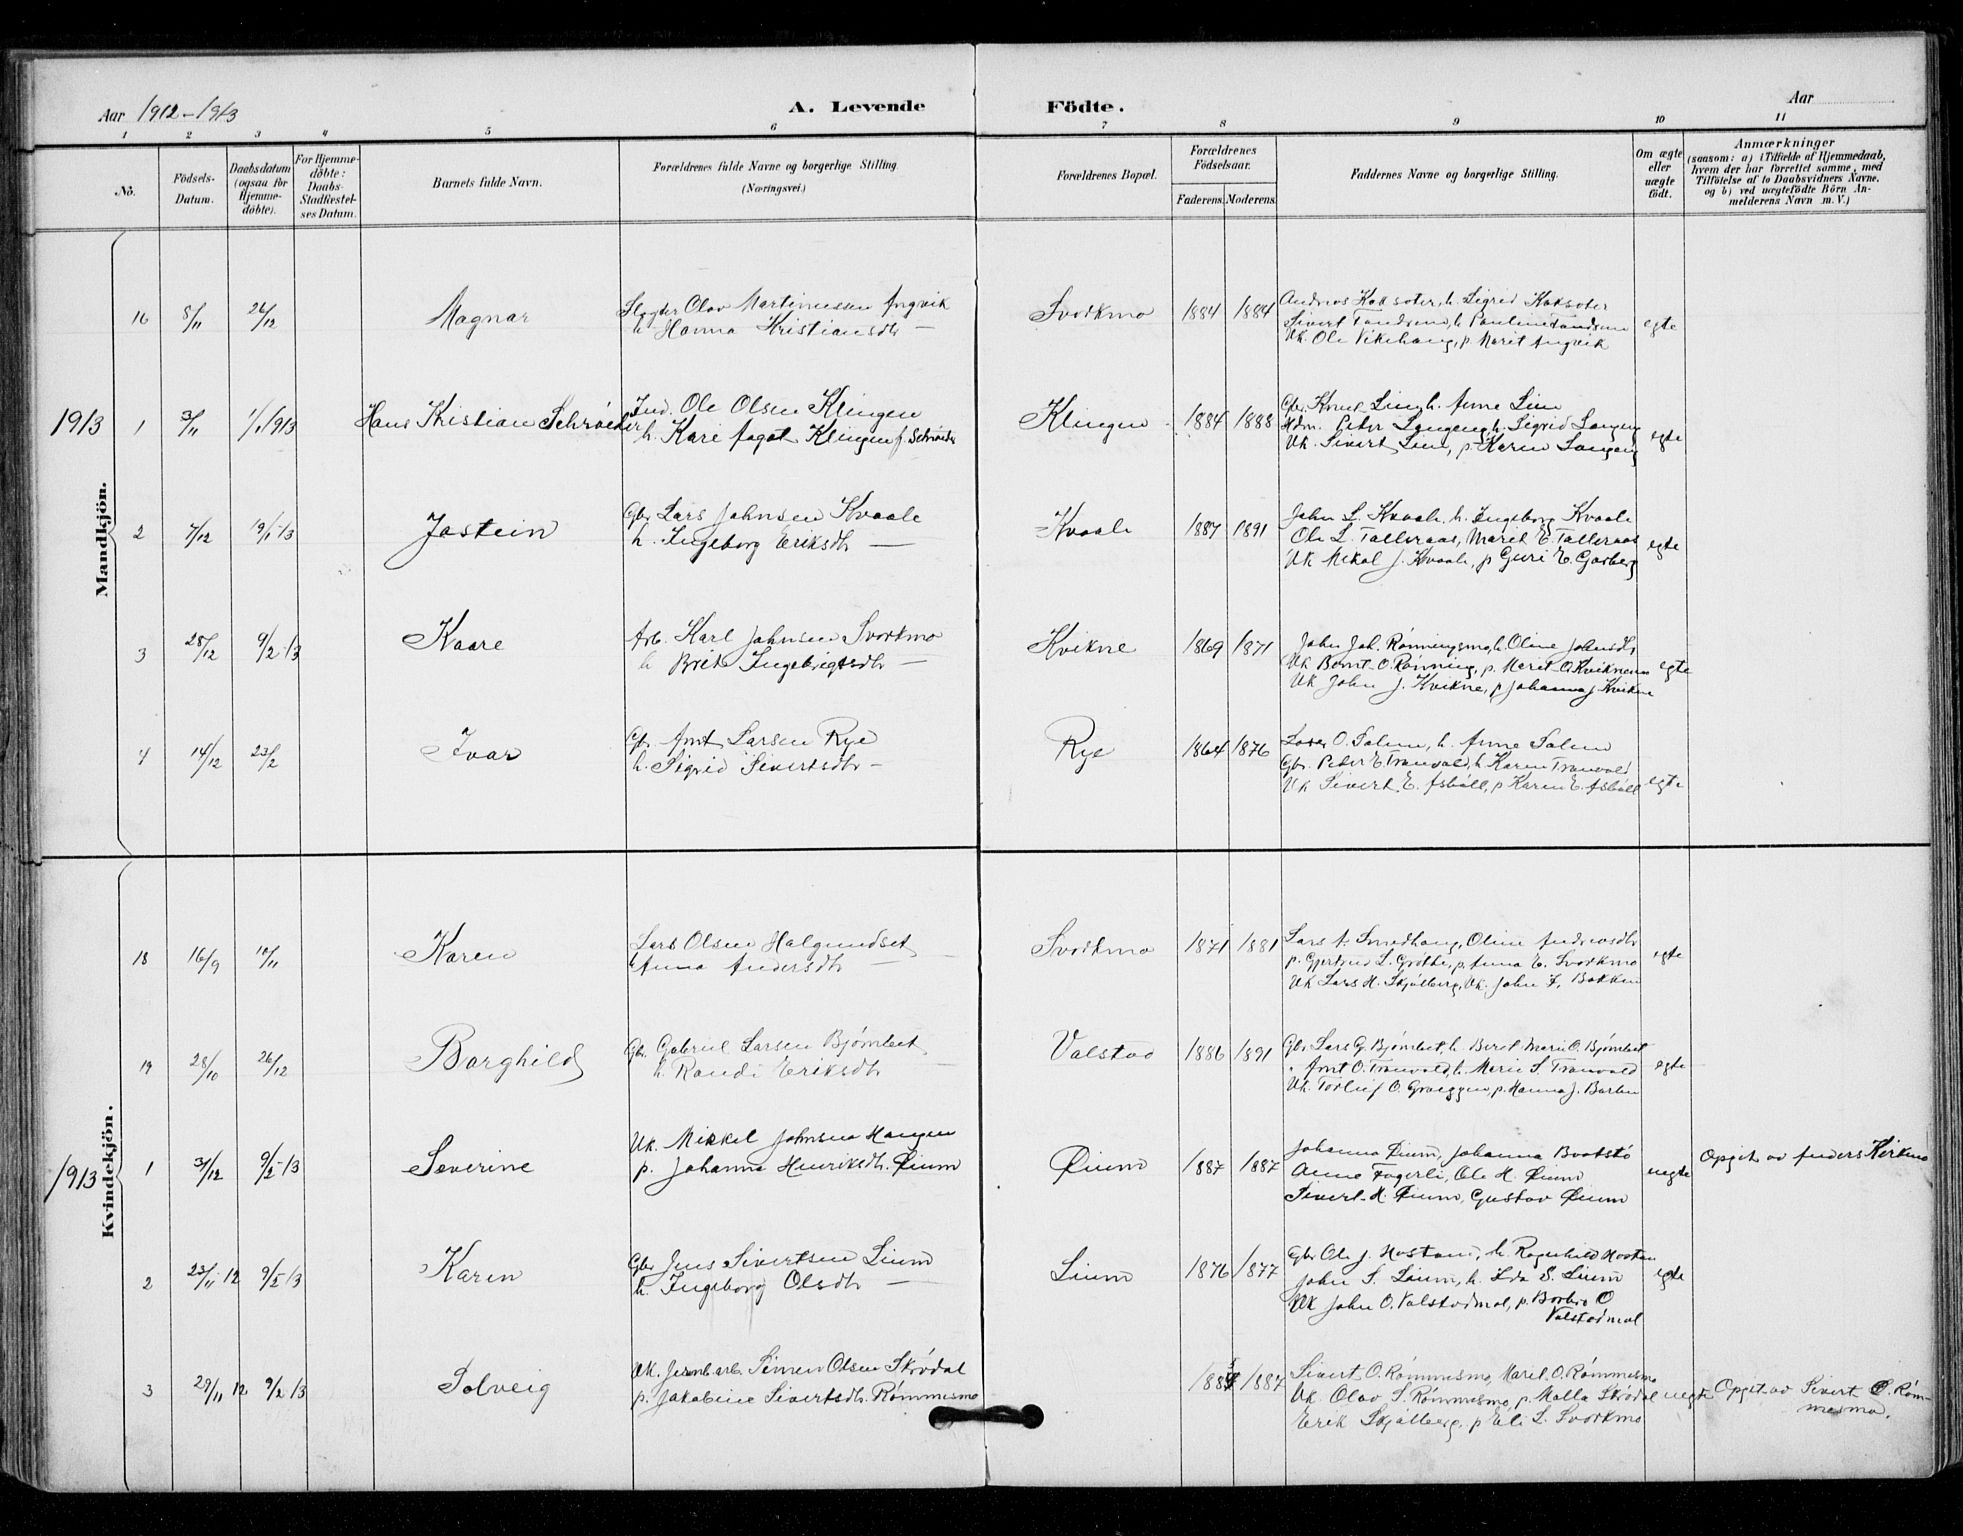 Aar 1912-1913
A. Levende Födte.
Aar
1 2 3 4 5 6 7 8 9 10 11
No.
Födsels-Datum.
Daabsdatum (ogsaa for Hjemmedöbte).
For Hjemmedöbte: Daabs-Stadfæstelses Datum.
Barnets fulde Navn.
Forældrenes fulde Navne og borgerlige Stilling. (Næringsvei.)
Forældrenes Bopæl.
Forældrenes Födselsaar.
Faderens. Moderens.
Faddernes Navne og borgerlige Stilling.
Om ægte eller uægte födt.
Anmærkninger
(saasom: a) i Tilfælde af Hjemmedaab, hvem der har forrettet samme, med Tilföielse af to Daabsvidners Navne, og b) ved uægtefödte Börn Anmelderens Navn m. V.)
Mandkjön.
16 8/11 26/12 Magnar
Olav Martinussen Angvik
h Hanna Kristiansdtr —
Svorkmo 1884 1884
Andreas Kaksæter, h. Sigrid Kaksæter
Sivert Tandsem, h Pauline Tandsem
Uk. Ole Vikehaug, p. Marit Angvik
egte
1913 1 3/11 1/1 1913 Hans Kristian Schrøder
Ind. Ole Olsen Klingen
h. Kari Aagot Klingen f. Schrøder
Klingen 1884 1888
Gbr. Knut Lium h. Anne Lium
Peter Langeng h. Sigrid Langeng
Uk. Sivert Lium, p. Karen Langeng
egte
2 7/12 19/1-13 Jostein
Gbr Lars Johnsen Kvaale
h. Ingeborg Eriksdtr —
Kvaale 1887 1891
John L. Kvaale, h. Ingeborg Kvaale
Ole L. Talleraas, Marit E. Talleraas
Uk Mikal J. Kvaale, p Guri E. Garberg
egte
3 28/12 9/2-13 Kaare
Arb. Karl Johnsen Svorkmo
h Brit Ingebrigtsdtr —
Kvikne 1869 1871
John Joh. Rønningsmo, h. Oline Johnsdtr
Uk Bernt O. Rønning, p. Marit O. Kviknemo
Uk John J. Kvikne, p Johanna J. Kvikne
egte
4 14/12 23/2 Ivar
Gbr. Arnt Larsen Rye
h. Sigrid Sivertsdtr —
Rye 1864 1876
Lars O. Solem, h. Anne Solem
Gbr. Peter E. Tranvald, h Karen Tranvald
Uk Sivert E. Asbøll, p Karen E. Asbøll
egte
Kvindekjön.
18 16/9 17/11 Karen
Lars Olsen Halgundset
h Anna Andersdtr —
Svorkmo 1871 1881
Lars A. Smedhaug, Oline Andreasdtr
p. Gjertrud L. Grøthe, p. Anna E. Svorkmo
Uk Lars H. Skjølberg, Uk. John F. Bakken
egte
19 28/10 26/12 Borghild
Gbr. Gabriel Larsen Bjørnbet
h. Randi Eriksdtr —
Valstad 1886 1891
Gbr Lars G. Bjørnbet, h. Beret Marie O. Bjørnbet
" Arnt O. Tranvald, h. Marie S. Tranvald
Uk. Torleif O. Græggen, p. Hanna J. Barbu
egte
1913 1 3/12 9/2-13 Severine
Uk. Mikkel Johnsen Haugen
p. Johanna Henriksdtr. Øium
Øium 1887 1887
Johanna Øium, Johanna Bootstø
Anna Fagerli, Ole H. Øium
Sivert H. Øium, Gustav Øium
uegte
Opgit av Anders Kirkmo
2 23/11 12 9/2 13 Karen
Gbr Jens Sivertsen Lium
h. Ingeborg Olsdtr —
Lium 1876 1877
Gbr Ole J. Hoston, h. Ragnhild Hoston
John S. Lium, h. Ida S. Lium
Uk John O. Valstadmol, p. Borbro O
Valstadmol
egte
3 29/11 12 9/2 13 Solveig
Uk. Jernb.arb. Simen Olsen Skrødal
p. Jakobine Sivertsdtr. Rømmesmo
1887
Sivert O. Rømmesmo, Marit O. Rømmesmo
Uk. Olav S. Rømmesmo, p. Malla Skrødal
Erik Skjølberg, p Eli L. Svorkmo
uegte
Opgit av Sivert O. Rømmesmo.